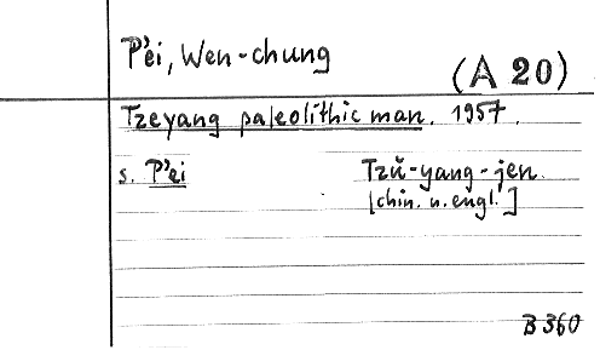 P'ei, Wen-chung
(A 20)
Tzeyang paleolithic man. 1957.
s. P'ei Tzŭ-yang-jen.
[chin. u. engl.]
B 360